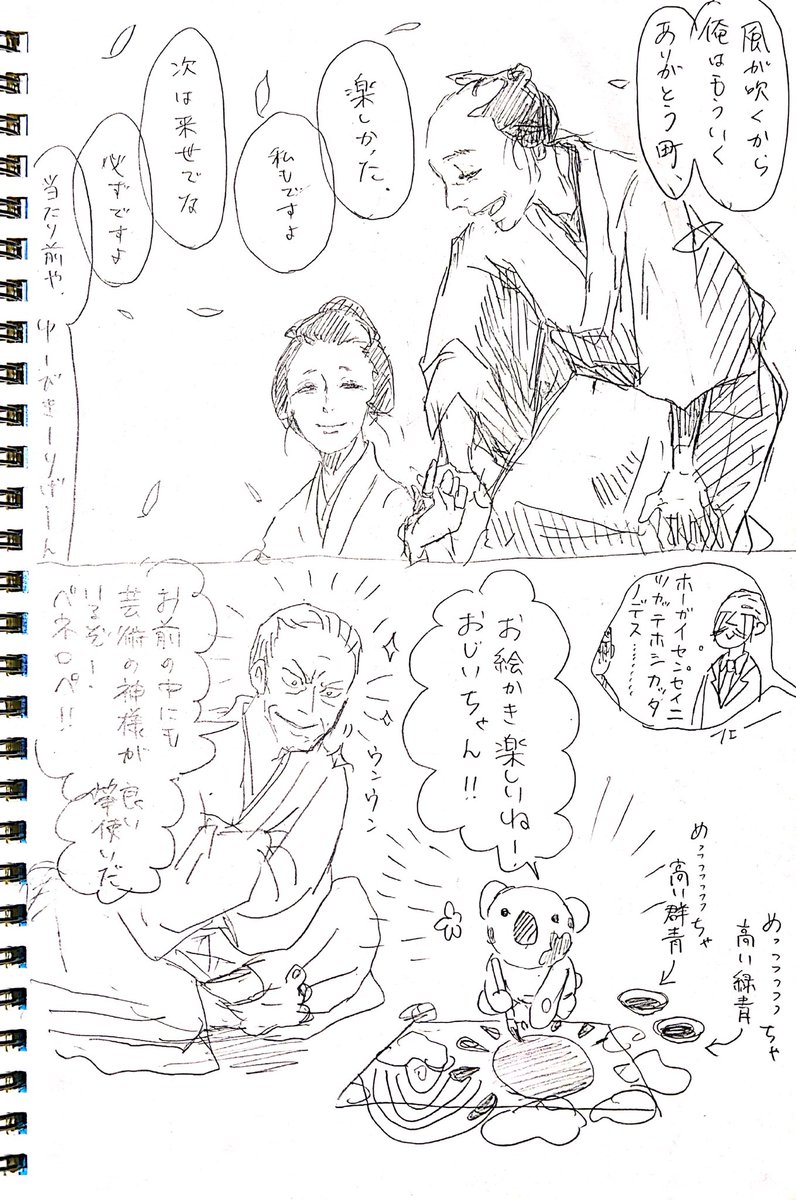 風が吹くから
俺はもういく
ありがとう町、
楽しかった、
私もですよ
次は来世でな
必ずですよ
当たり前や、
ゆーびきーりげーん
ホーガイセンセイニ
ツカッテホシカッタ
ノデス………
お絵かき楽しいねー！
おじいちゃん!!
ウンウン
お前の中にも
芸術の神様が
いるぞー！
ペネロペ!!
良い
筆使いだ
めっっっっっっちゃ
高い群青
めっっっっっっちゃ
高い緑青